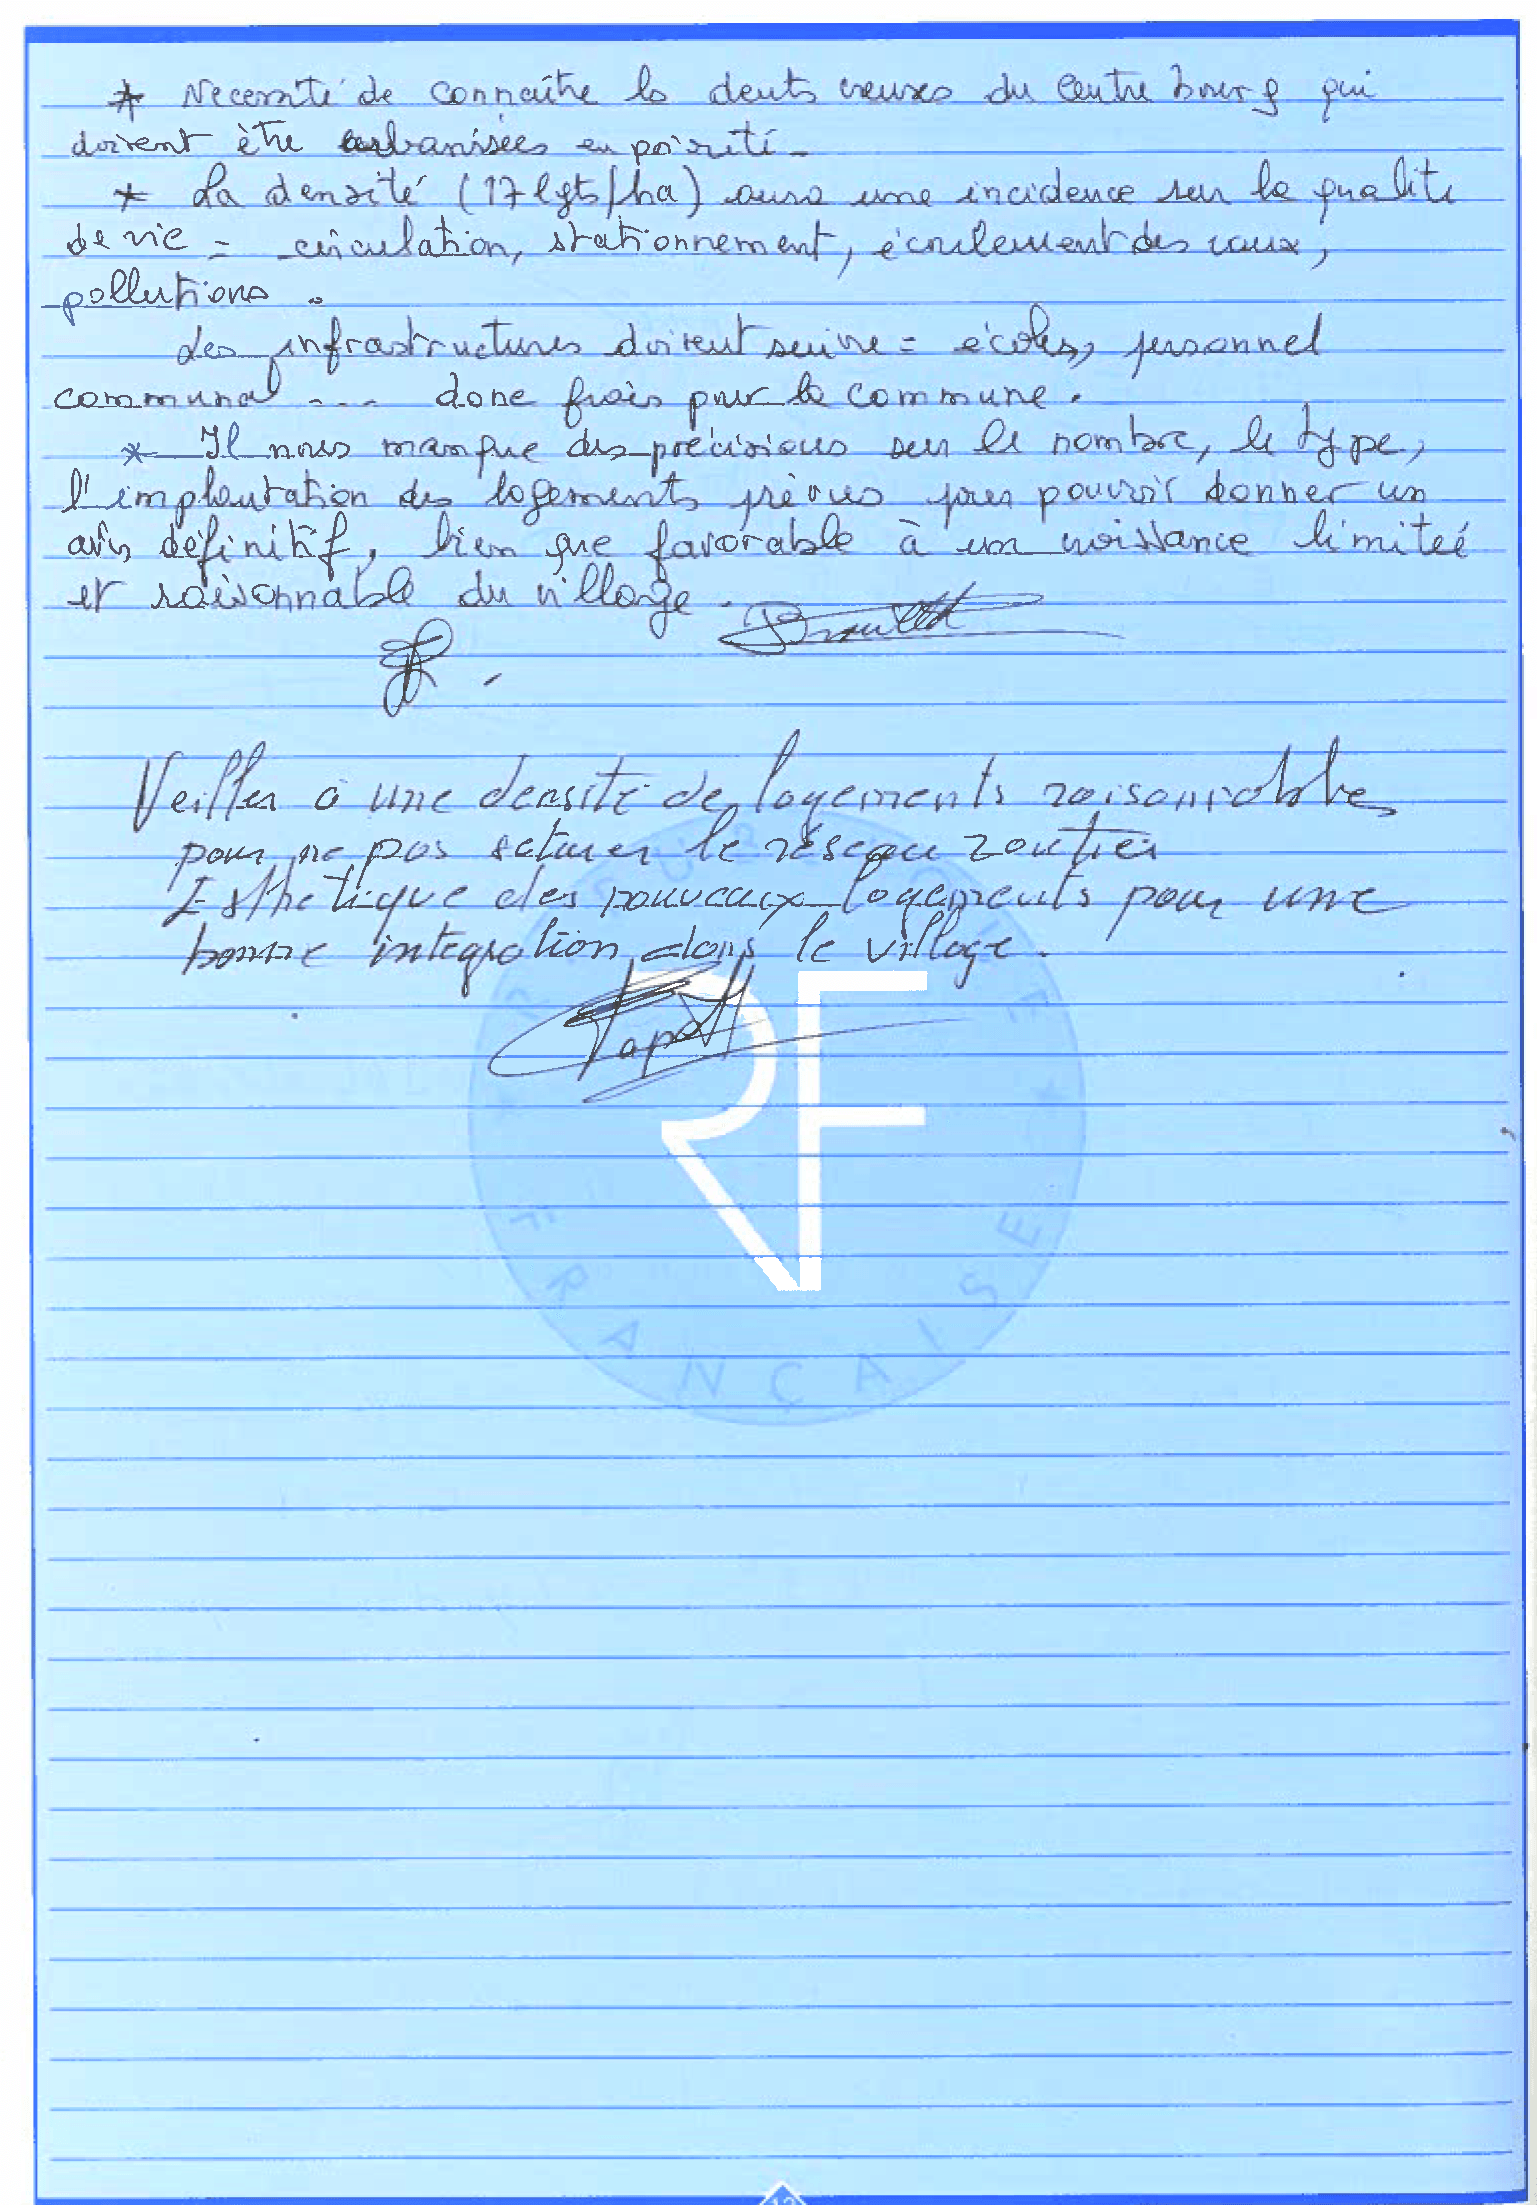 * Necessité de connaître les dents creuses du Centre bourg qui
doivent être urbanisées en poirité.
* La densité (17 lgts/ha) aura une incidence sur la qualité
de vie = circulation, stationnement, écoulement des eaux,
pollutions.
Les infrastructures doivent suivre = écoles, personnel
communal ... donc frais pour la commune.
* Il nous manque des précisions sur le nombre, le type,
l'implantation des logements prévus pour pouvoir donner un
avis définitif, bien que favorable à un croissance limitée
et raisonnable du village.
Veiller à une densité de logements raisonnables
pour ne pas saturer le réseau routier
Esthetique des nouveaux logements pour une
bonne integration dans le village.
RF
FRANÇAISE